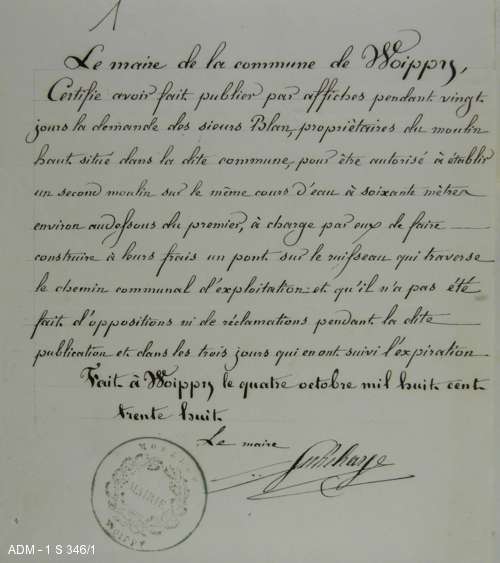 1
Le maire de la commune de Woippy,
Certifie avoir fait publier par affiches pendant vingt
jours la demande des sieurs Blan, propriétaires du moulin
haut situé dans la dite commune, pour être autorisé à établir
un second moulin sur le même cours d'eau à soixante mètres
environ audessous du premier, à charge par eux de faire
construire à leurs frais un pont sur le ruisseau qui traverse
le chemin communal d'exploitation et qu'il n'a pas été
fait d'oppositions ni de réclamations pendant la dite
publication et dans les trois jours qui en ont suivi l'expiration
Fait à Woippy le quatre octobre mil huit cent
trente huit.
Le maire
MOSELLE
MAIRIE
WOIPPY
ADM - 1 S 346/1